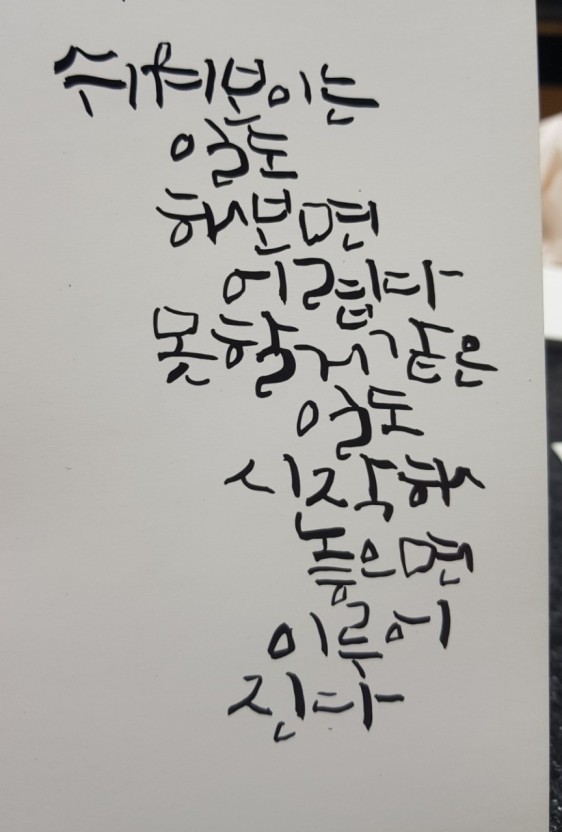 쉬워보이는
일도
해보면
어렵다
못할거같은
일도
시작해
놓으면
이루어
진다